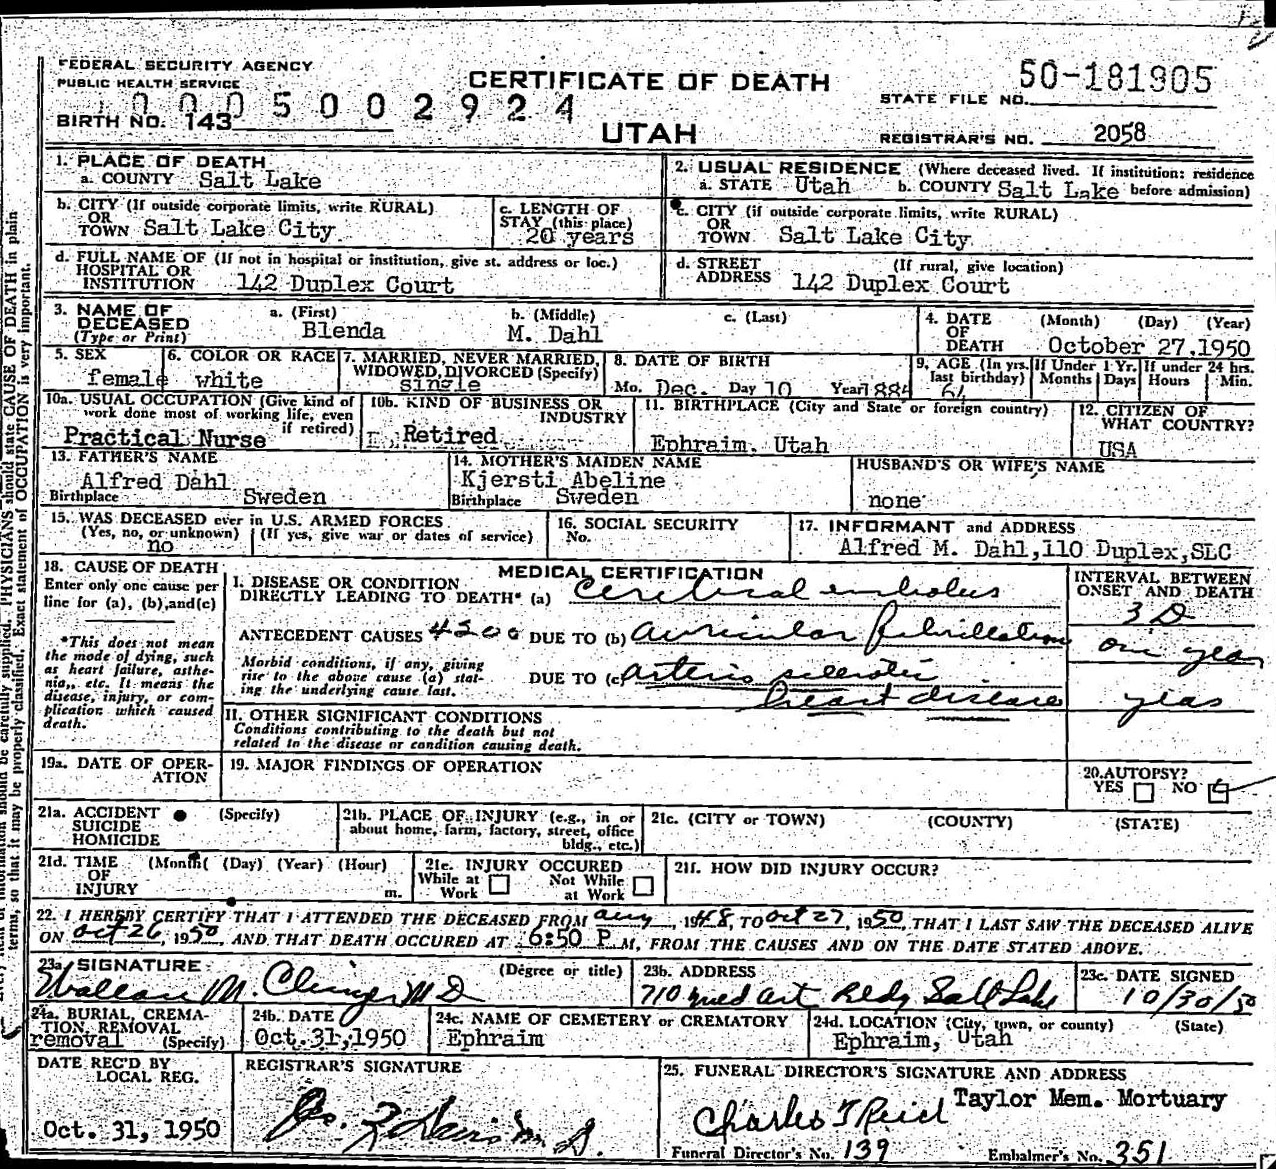 FEDERAL SECURITY AGENCY
PUBLIC HEALTH SERVICE
CERTIFICATE OF DEATH
UTAH
50-181905
STATE FILE NO.
0005002924
BIRTH NO. 143
REGISTRAR'S NO. 2058
1. PLACE OF DEATH
a. COUNTY Salt Lake
2. USUAL RESIDENCE (Where deceased lived. If institution: residence
a. STATE Utah b. COUNTY Salt Lake before admission)
b. CITY (If outside corporate limits, write RURAL)
OR
TOWN Salt Lake City
c. LENGTH OF
STAY (this place)
20 years
c. CITY (if outside corporate limits, write RURAL)
OR
TOWN Salt Lake City
d. FULL NAME OF (If not in hospital or institution, give st. address or loc.)
HOSPITAL OR
INSTITUTION 142 Duplex Court
d. STREET (If rural, give location)
ADDRESS 142 Duplex Court
3. NAME OF
DECEASED
(Type or Print)
a. (First) b. (Middle) c. (Last)
Blenda M. Dahl
4. DATE (Month) (Day) (Year)
OF
DEATH October 27, 1950
5. SEX
female
6. COLOR OR RACE
white
7. MARRIED, NEVER MARRIED,
WIDOWED, DIVORCED (Specify)
single
8. DATE OF BIRTH
Mo. Dec. Day 10 Year 188
9. AGE (In yrs.
last birthday)
64
If Under 1 Yr.
Months Days
If under 24 hrs.
Hours Min.
10a. USUAL OCCUPATION (Give kind of
work done most of working life, even
if retired)
Practical Nurse
10b. KIND OF BUSINESS OR
INDUSTRY
Retired
11. BIRTHPLACE (City and State or foreign country)
Ephraim, Utah
12. CITIZEN OF
WHAT COUNTRY?
USA
13. FATHER'S NAME
Alfred Dahl
Birthplace Sweden
14. MOTHER'S MAIDEN NAME
Kjersti Abeline
Birthplace Sweden
HUSBAND'S OR WIFE'S NAME
none
15. WAS DECEASED ever in U.S. ARMED FORCES
(Yes, no, or unknown) (If yes, give war or dates of service)
no
16. SOCIAL SECURITY
No.
17. INFORMANT and ADDRESS
Alfred M. Dahl, 110 Duplex, SLC
18. CAUSE OF DEATH
Enter only one cause per
line for (a), (b), and (c)
*This does not mean
the mode of dying, such
as heart failure, asthe-
nia,, etc. It means the
disease, injury, or com-
plication which caused
death.
MEDICAL CERTIFICATION
I. DISEASE OR CONDITION
DIRECTLY LEADING TO DEATH* (a) Cerebral embolus
ANTECEDENT CAUSES 4200 DUE TO (b) auricular fibrillation
Morbid conditions, if any, giving
rise to the above cause (a) stat-
ing the underlying cause last.
DUE TO (c) arterio sclerotic
heart disease
INTERVAL BETWEEN
ONSET AND DEATH
3 D
one year
years
II. OTHER SIGNIFICANT CONDITIONS
Conditions contributing to the death but not
related to the disease or condition causing death.
19a. DATE OF OPER-
ATION
19. MAJOR FINDINGS OF OPERATION
20. AUTOPSY?
YES NO
21a. ACCIDENT (Specify)
SUICIDE
HOMICIDE
21b. PLACE OF INJURY (e.g., in or
about home, farm, factory, street, office
bldg., etc.)
21c. (CITY or TOWN) (COUNTY) (STATE)
21d. TIME (Month( (Day) (Year) (Hour)
OF
INJURY m.
21e. INJURY OCCURED
While at Work Not While at Work
21f. HOW DID INJURY OCCUR?
22. I HEREBY CERTIFY THAT I ATTENDED THE DECEASED FROM Aug, 1948, TO Oct 27, 1950, THAT I LAST SAW THE DECEASED ALIVE
ON Oct 26, 1950, AND THAT DEATH OCCURED AT 6:50 P.M, FROM THE CAUSES AND ON THE DATE STATED ABOVE.
23a SIGNATURE (Degree or title)
M. MD
23b. ADDRESS
710 Med Art Bldg Salt Lake
23c. DATE SIGNED
10/30/50
24a. BURIAL, CREMA-
TION, REMOVAL
removal (Specify)
24b. DATE
Oct. 31, 1950
24c. NAME OF CEMETERY or CREMATORY
Ephraim
24d. LOCATION (City, town, or county) (State)
Ephraim, Utah
DATE REC'D BY
LOCAL REG.
Oct. 31, 1950
REGISTRAR'S SIGNATURE
25. FUNERAL DIRECTOR'S SIGNATURE AND ADDRESS
Taylor Mem. Mortuary
Charles T Reid
Funeral Director's No. 139 Embalmer's No. 351